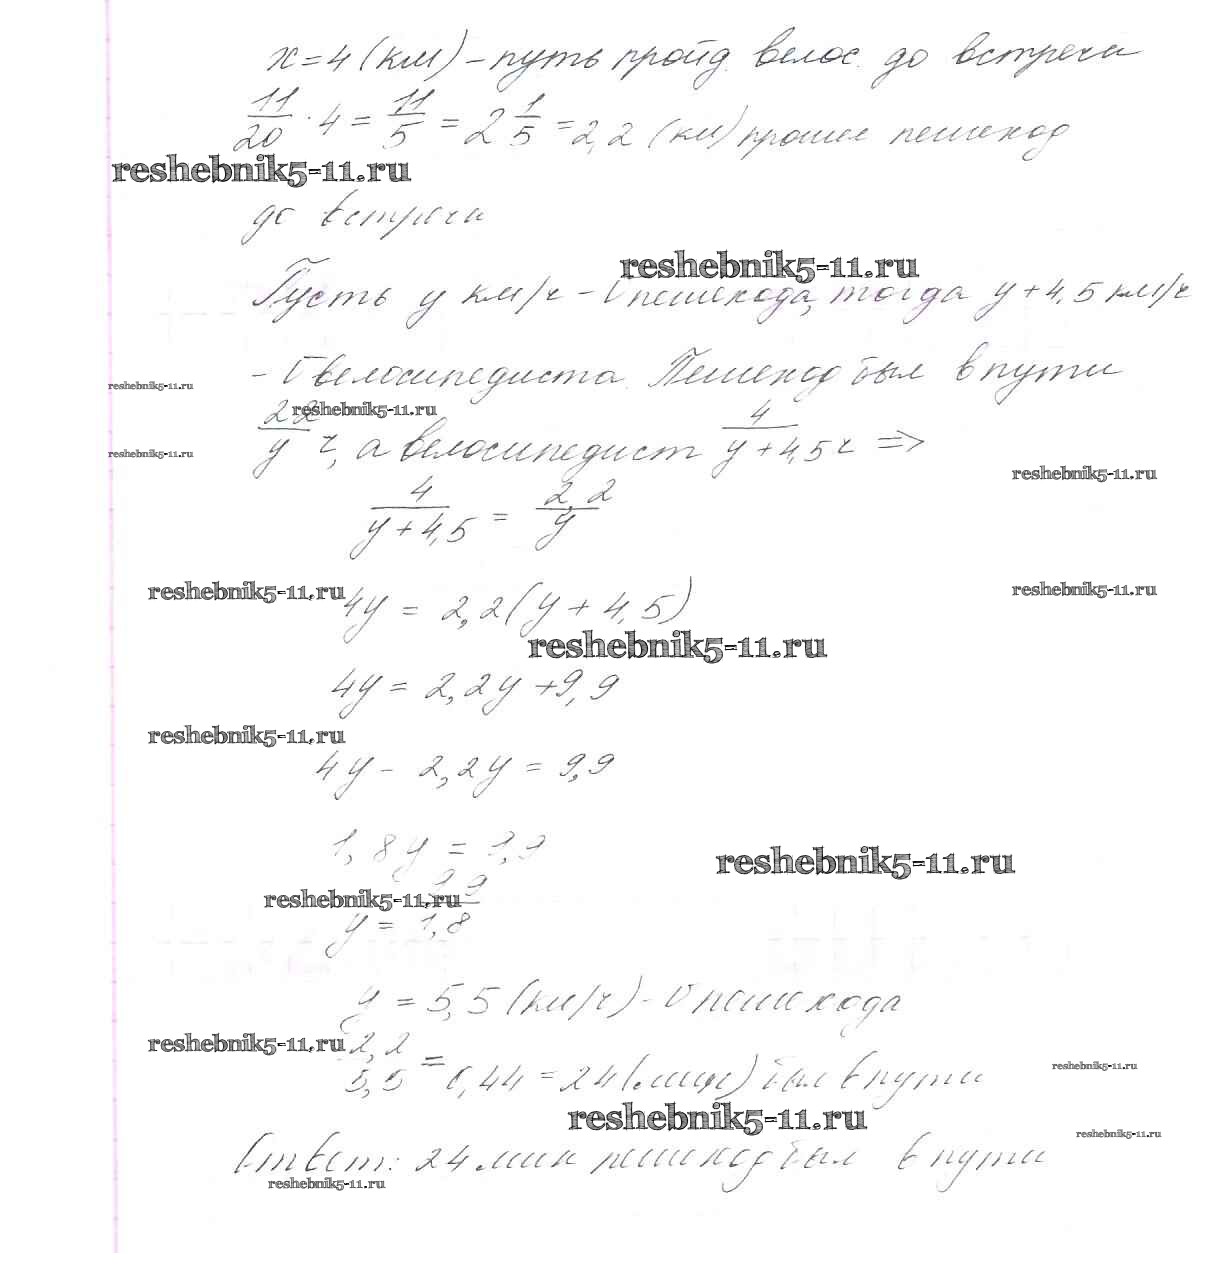 x = 4 (км) – путь пройд. велос. до встречи
11/20 · 4 = 11/5 = 2 1/5 = 2,2 (км) прошел пешеход
reshebnik5-11.ru
до встречи
reshebnik5-11.ru
Пусть y км/ч – V пешехода, тогда y + 4,5 км/ч
– V велосипедиста. Пешеход был в пути
reshebnik5-11.ru
reshebnik5-11.ru
2,2/y ч, а велосипедист 4/(y + 4,5) ч =>
reshebnik5-11.ru
reshebnik5-11.ru
4/(y + 4,5) = 2,2/y
reshebnik5-11.ru
reshebnik5-11.ru
4y = 2,2(y + 4,5)
reshebnik5-11.ru
4y = 2,2y + 9,9
reshebnik5-11.ru
4y – 2,2y = 9,9
1,8y = 9,9
reshebnik5-11.ru
reshebnik5-11.ru
y = 9,9/1,8
y = 5,5 (км/ч) – V пешехода
reshebnik5-11.ru
2,2/5,5 = 0,44 = 24 (мин) был в пути
reshebnik5-11.ru
reshebnik5-11.ru
reshebnik5-11.ru
Ответ: 24 мин пешеход был в пути
reshebnik5-11.ru